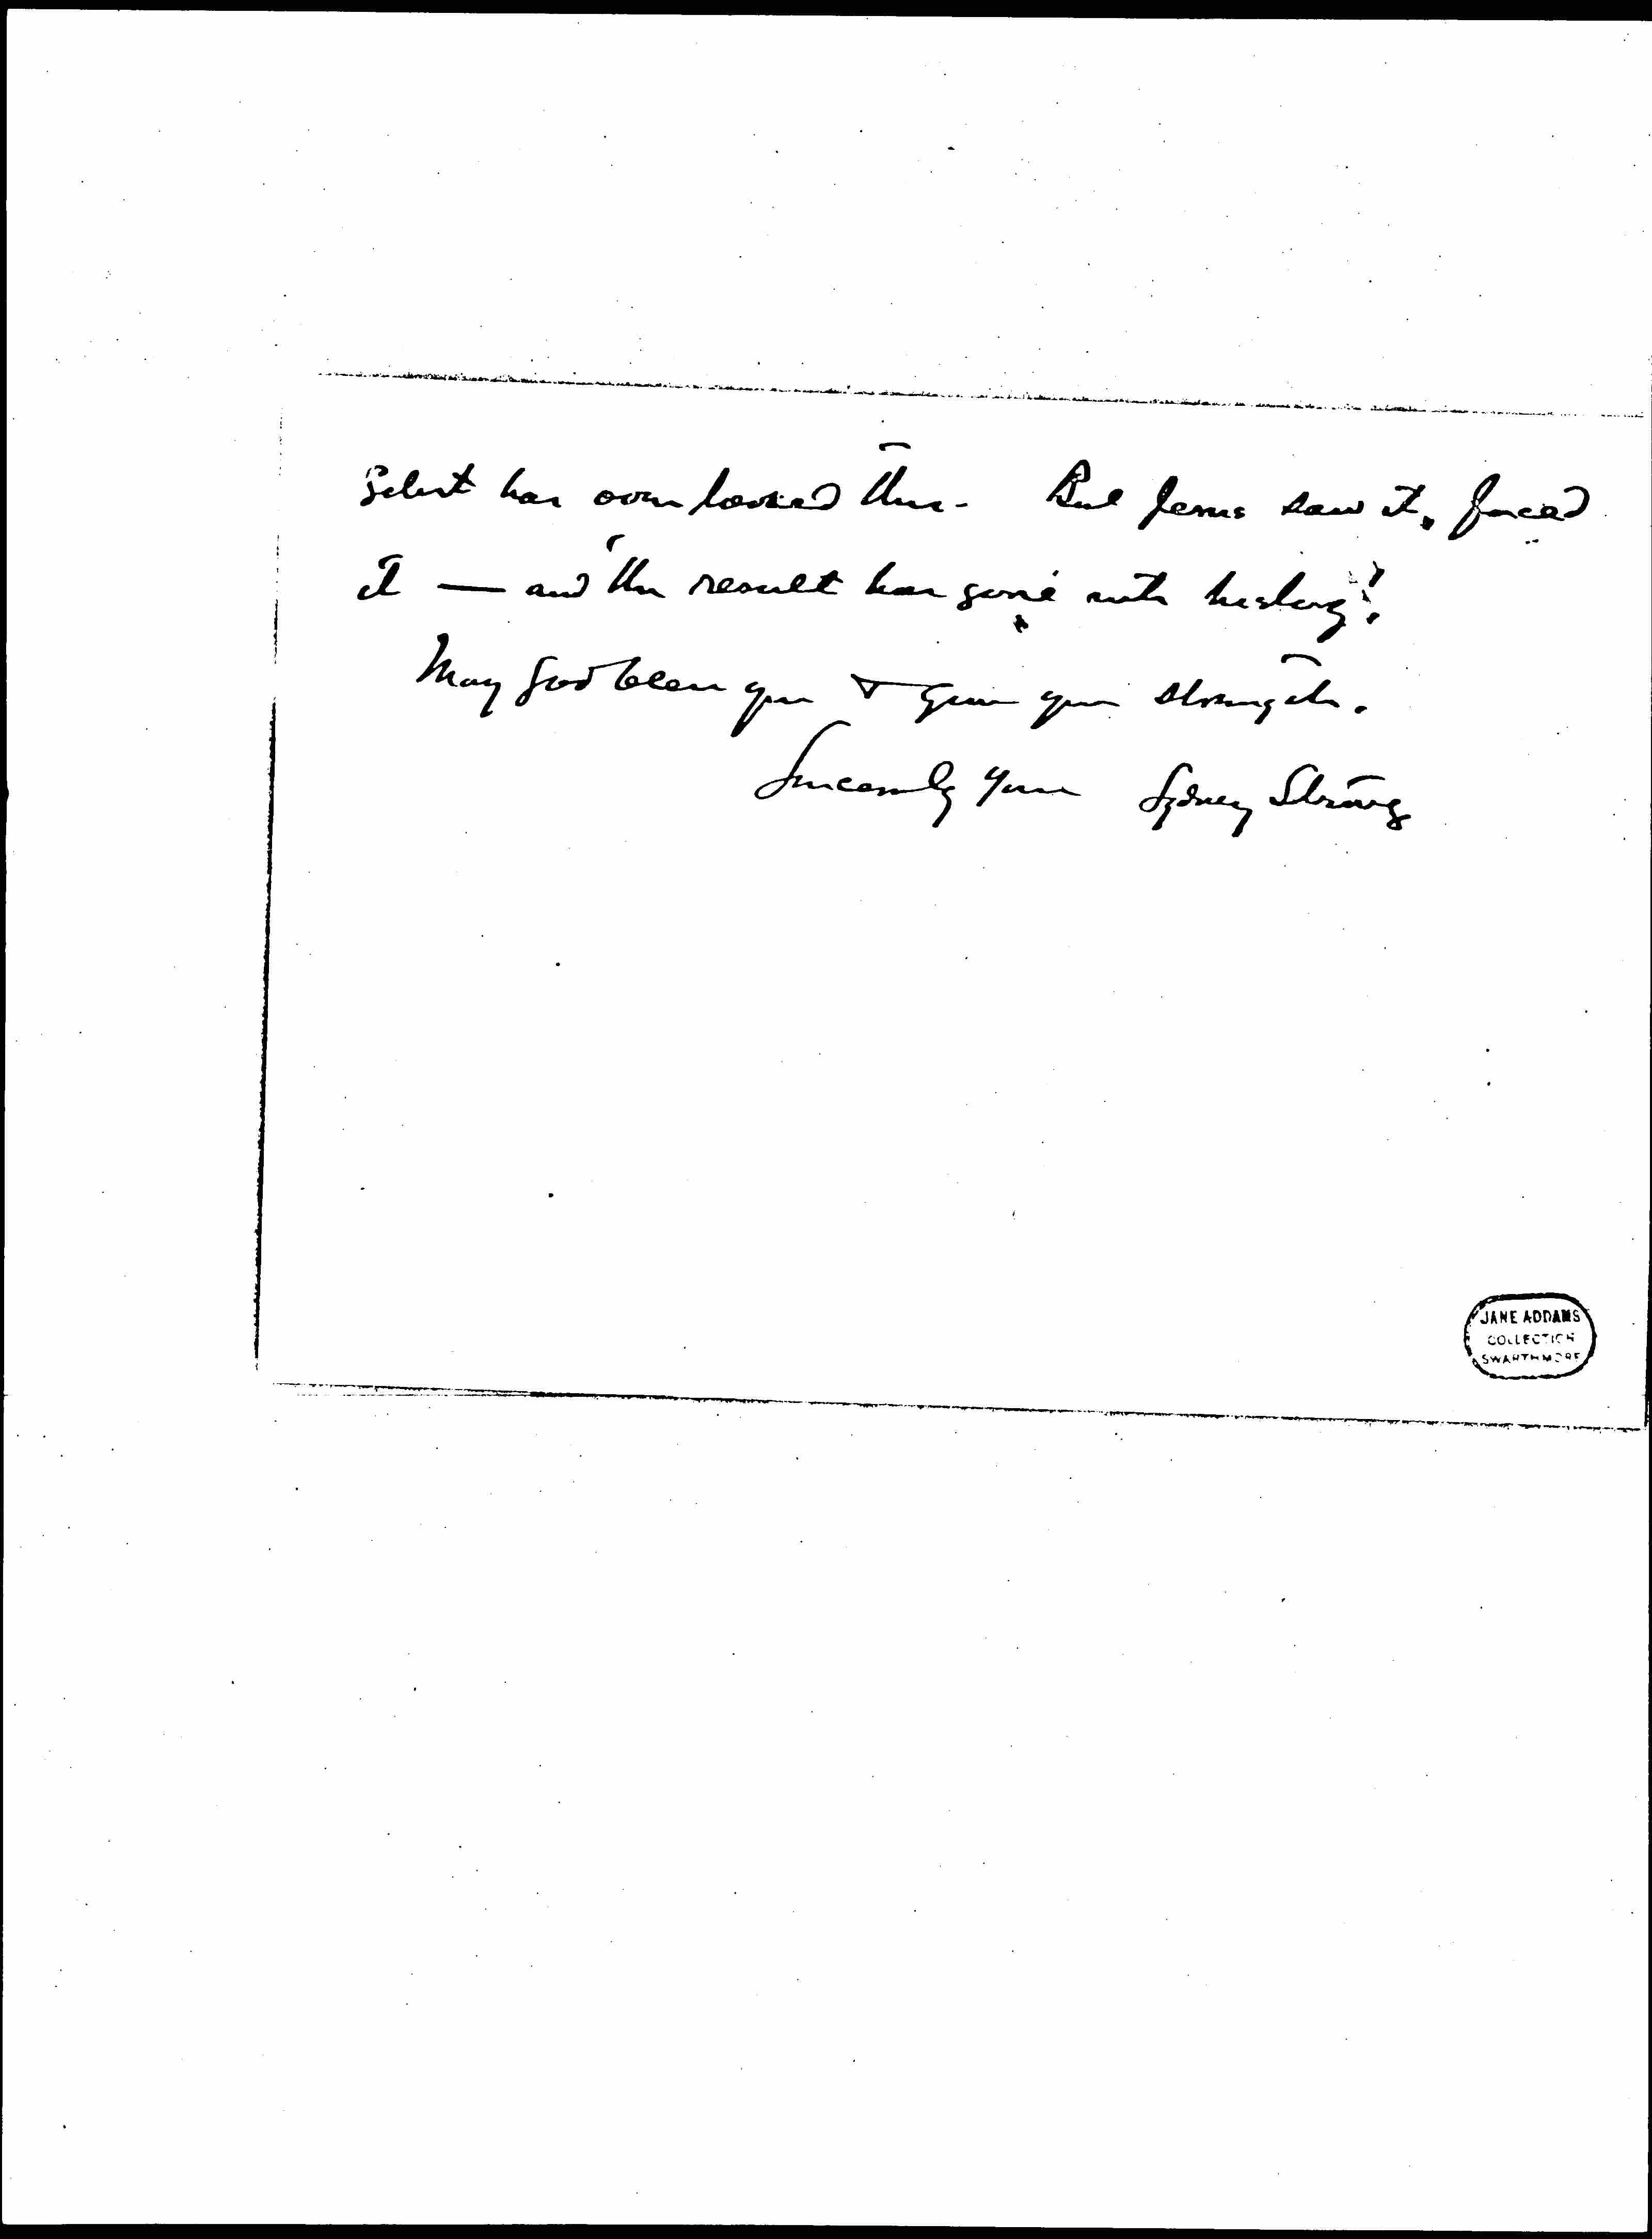 has overlooked this. But Jesus saw it, faced
it — and the result has gone into history!
May God bless you & give you strength.
Sincerely yours Sydney Strong
JANE ADDAMS
COLLECTION
SWARTHMORE